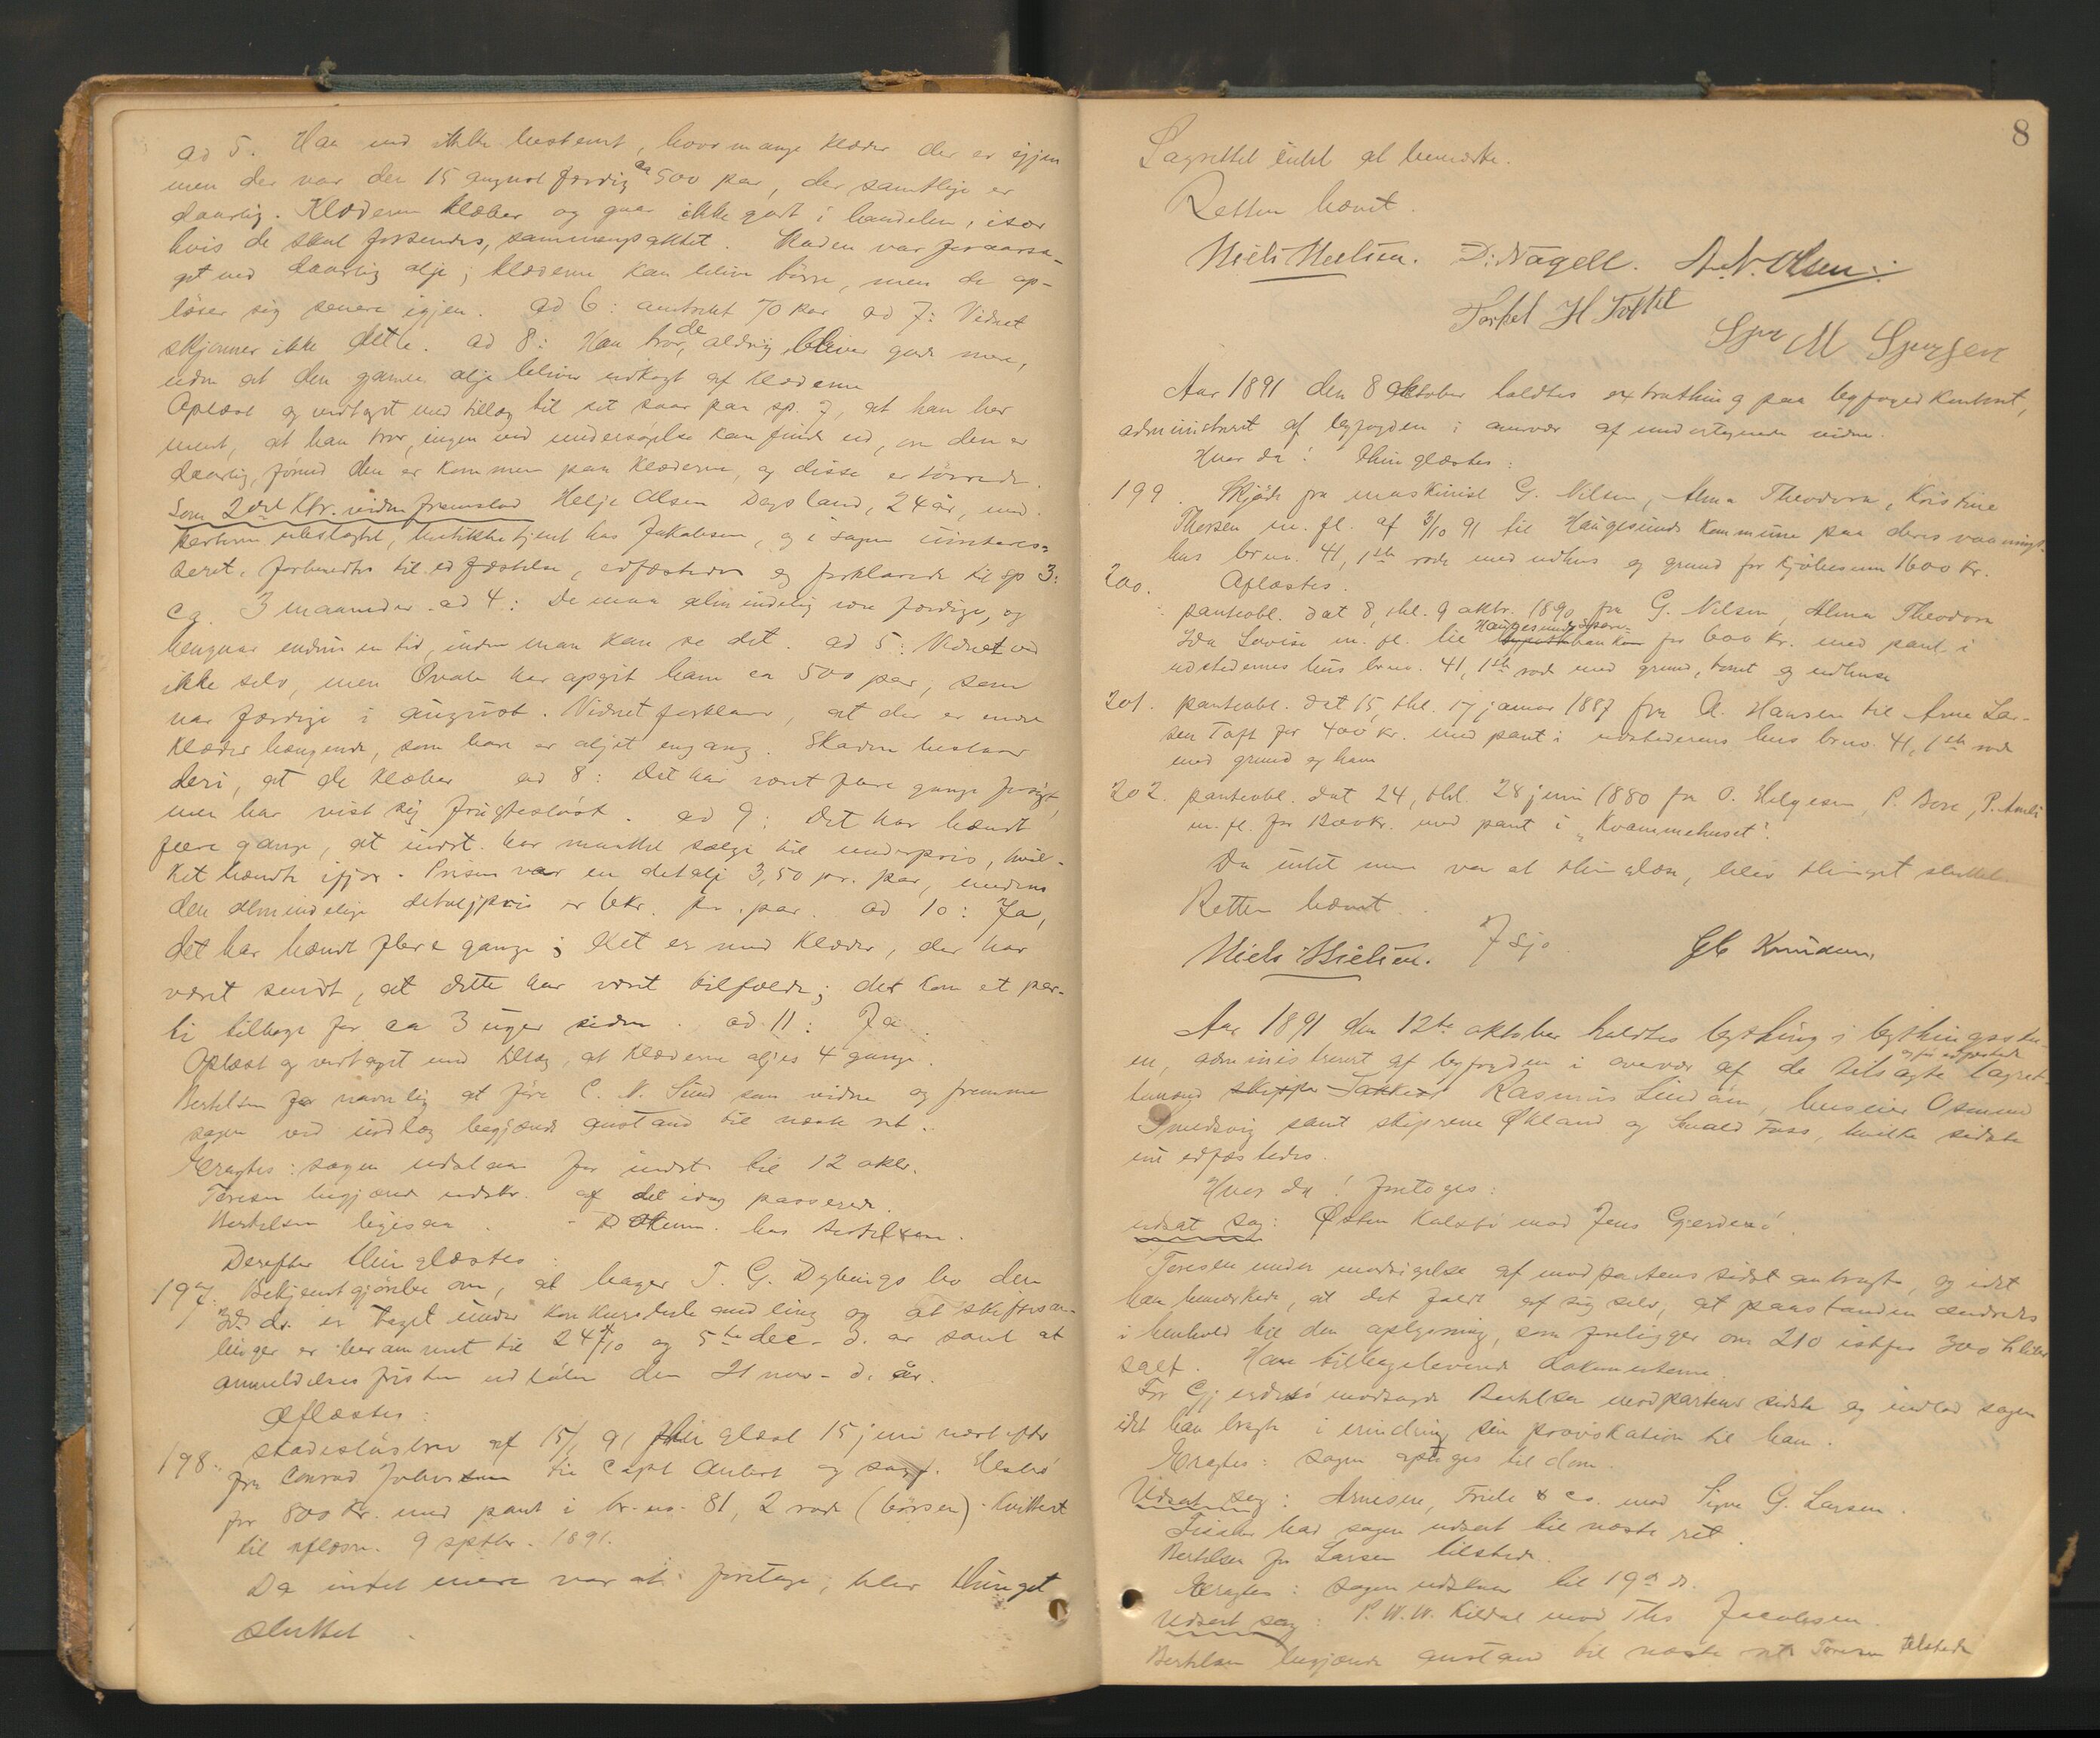 ad 5. Han ved ikke bestemt, hvor mange klæder der er igjen
men der var den 15 august færdig ca 500 par, der samtlige er
daarlig. Klæderne klæber og gaar ikke godt i handelen, især
hvis de skal forsendes, sammenpakket. Skaden var foraarsa-
get ved daarlig olje; klæderne kan blive tørre, men de op-
løser sig senere igjen. ad 6: omtrent 70 par ad 7: Vidnet
skjønner ikke dette. ad 8: Han tror, de aldrig bliver gode mere,
uden at den gamle olje bliver udkogt af klæderne
Oplæst og vedtaget med tillæg til sit svar paa sp. 7, at han har
ment, at han tror, ingen ved undersøgelse kan finde ud, om den er
daarlig, førend den er kommen paa klæderne, og disse er tørrede.
Som 2det ktr. vidne fremstod Helje Olsen Dagsland, 24 år, med
parterne ubeslægtet, har Jakobsen, og i sagen uinteres-
seret, forberedtes til edfæstelse, edfæstedes og forklarede til sp 3:
ca. 3 maaneder. ad 4: De maa almindelig være færdige, og
hengaar endnu en tid, inden man kan se det. ad 5: Vidnet ved
ikke selv, men har opgit ham ca 500 par, som
var færdige i august. Vidnet forklarer, at der er endnu
klæder hængende, som bare er oljet engang. Skaden bestaar
deri, at de klæber ad 8: Det har været flere gange forsøgt,
men har vist sig frugtesløst. ad 9: Det har hændt
flere gange, at indst. har maattet sælge til underpris, hvil-
ket hændte ifjor. Prisen var en detalj 3,50 pr. par, medens
den almindelige detaljpris er 6kr. pr. par. ad 10: Ja,
det har hændt flere gange; det er med klæder, der har
været sendt, at dette har været tilfælde; det kom et par-
ti tilbage for ca 3 uger siden. ad 11: Ja.
Oplæst og vedtaget med tillæg, at klæderne oljes 4 gange.
Bertelsen for navnlig at føre C. N. Sund som vidne og fremme
sagen ved indlæg begjærede anstand til næste ret.
Eragtes: sagen udstaar for indst. til 12 oktr.
Toresen begjærede udskr. af det idag passerede.
Bertelsen ligesaa. Dokum. hos Bertelsen.
Derefter thinglæstes:
197. Bekjendtgjørelse om, at bager T. G. Dybings bo den
3die ds. er taget under konkursbehandling og at skiftesam-
linger er berammet til 24/10 og 5te dec. d. ar samt at
anmeldelsesfristen udløber den 21 nov. d. år.
Aflæstes:
198. skadesløsbrev af 15/ 91 thinglæst 15 juni næstefter
fra Conrad Johnsen til Capt Aubert og sagf.
for 800 kr. med pant i br. no. 81, 2 rode (børsen). kvitteret
til aflæsn. 9 septbr. 1891.
Da intet mere var at foretage, blev thinget
sluttet.
8
Lagrettet intet at bemærke.
Retten hævet.
Niels Nielsen. D. Nagell. A. N. Olsen
Torkel H
Aar 1891 den 8 oktober holdtes extrathing paa byfogedkontoret,
administreret af byfogden i overvær af undertegnede vidner.
Hvor da! thinglæstes:
199. Skjøde fra maskinist G. Nilsen, Alma Theodora, Kristine
Thorsen m. fl. af 3/10 91 til Haugesunds kommune paa deres vaanings-
hus brno. 41, 1ste rode med udhus og grund for kjøbesum 1600 kr.
Aflæstes.
200. panteobl. dat 8, thl. 9 oktbr. 1890 fra G. Nilsen, Alma Theodora
Ida Lovise m. fl. til Haugesunds spare- banken for 600 kr. med pant i
udstedernes hus brno. 41, 1ste rode med grund, tomt og udhuse
201. panteobl. dat 15, thl. 17 januar 1887 fra A. Hansen til Arne Lar-
sen Toft for 400 kr. med pant i udstederens hus brno. 41, 1ste rode
med grund og have
202. panteobl. dat 24, thl. 28 juni 1880 fra O. Helgesen, P. Bore,
m. fl. for 1200kr. med pant i „Kvammehuset".
Da intet mere var at thinglæse, blev thinget sluttet.
Retten hævet.
Niels Nielsen. Knudsen.
Aar 1891 den 12te oktober holdtes bything i bythingsstu-
en, administreret af byfogden i overvær af de tilsagte og før edfæstede lagret-
temænd skipper Rasmus Lindøen, huseier Osmund
Smedsvig samt skipperne Økland og Foss, hvilke sidste
nu edfæstedes.
Hvor da! foretoges:
udsat sag: Østen Kalstø mod Jens Gjerdesø.
Toresen under modsigelse af modpartens sidst anbragte, og idet
han bemærkede, at det faldt af sig selv, at paastanden ændredes
i henhold til den oplysning, som foreligger om 210 istfor 300 hliter
salt. Han tilbageleverede dokumenterne.
For Gjerdesø modsagde Bertelsen modpartens sidste og indlod sagen
idet han bragte i erindring sin provokation til ham.
Eragtes: sagen optages til dom.
Udsat sag: Arnesen, Friele & co. mod Sigve G. Larsen.
bad sagen udsat til næste ret.
Bertelsen for Larsen tilstede.
Eragtes: sagen udstaar til 19de ds.
Udsat sag: P. W. W. Kildal mod Ths Jacobsen.
Bertelsen begjærede anstand til næste ret. Toresen tilstede